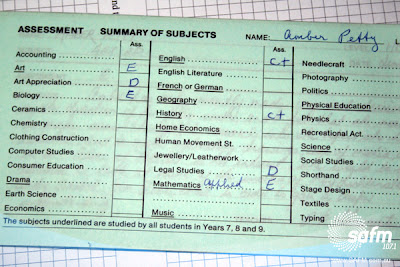 ASSESSMENT SUMMARY OF SUBJECTS NAME: Amber Petty
Ass.
Accounting
Art E
Art Appreciation D
Biology E
Ceramics
Chemistry
Clothing Construction
Computer Studies
Consumer Education
Drama
Earth Science
Economics
Ass.
English C+
English Literature
French or German
Geography
History C+
Home Economics
Human Movement St.
Jewellery/Leatherwork
Legal Studies D
Mathematics Applied E
Music
Needlecraft
Photography
Politics
Physical Education
Physics
Recreational Act.
Science
Social Studies
Shorthand
Stage Design
Textiles
Typing
The subjects underlined are studied by all students in Years 7, 8 and 9.
safm
107.1